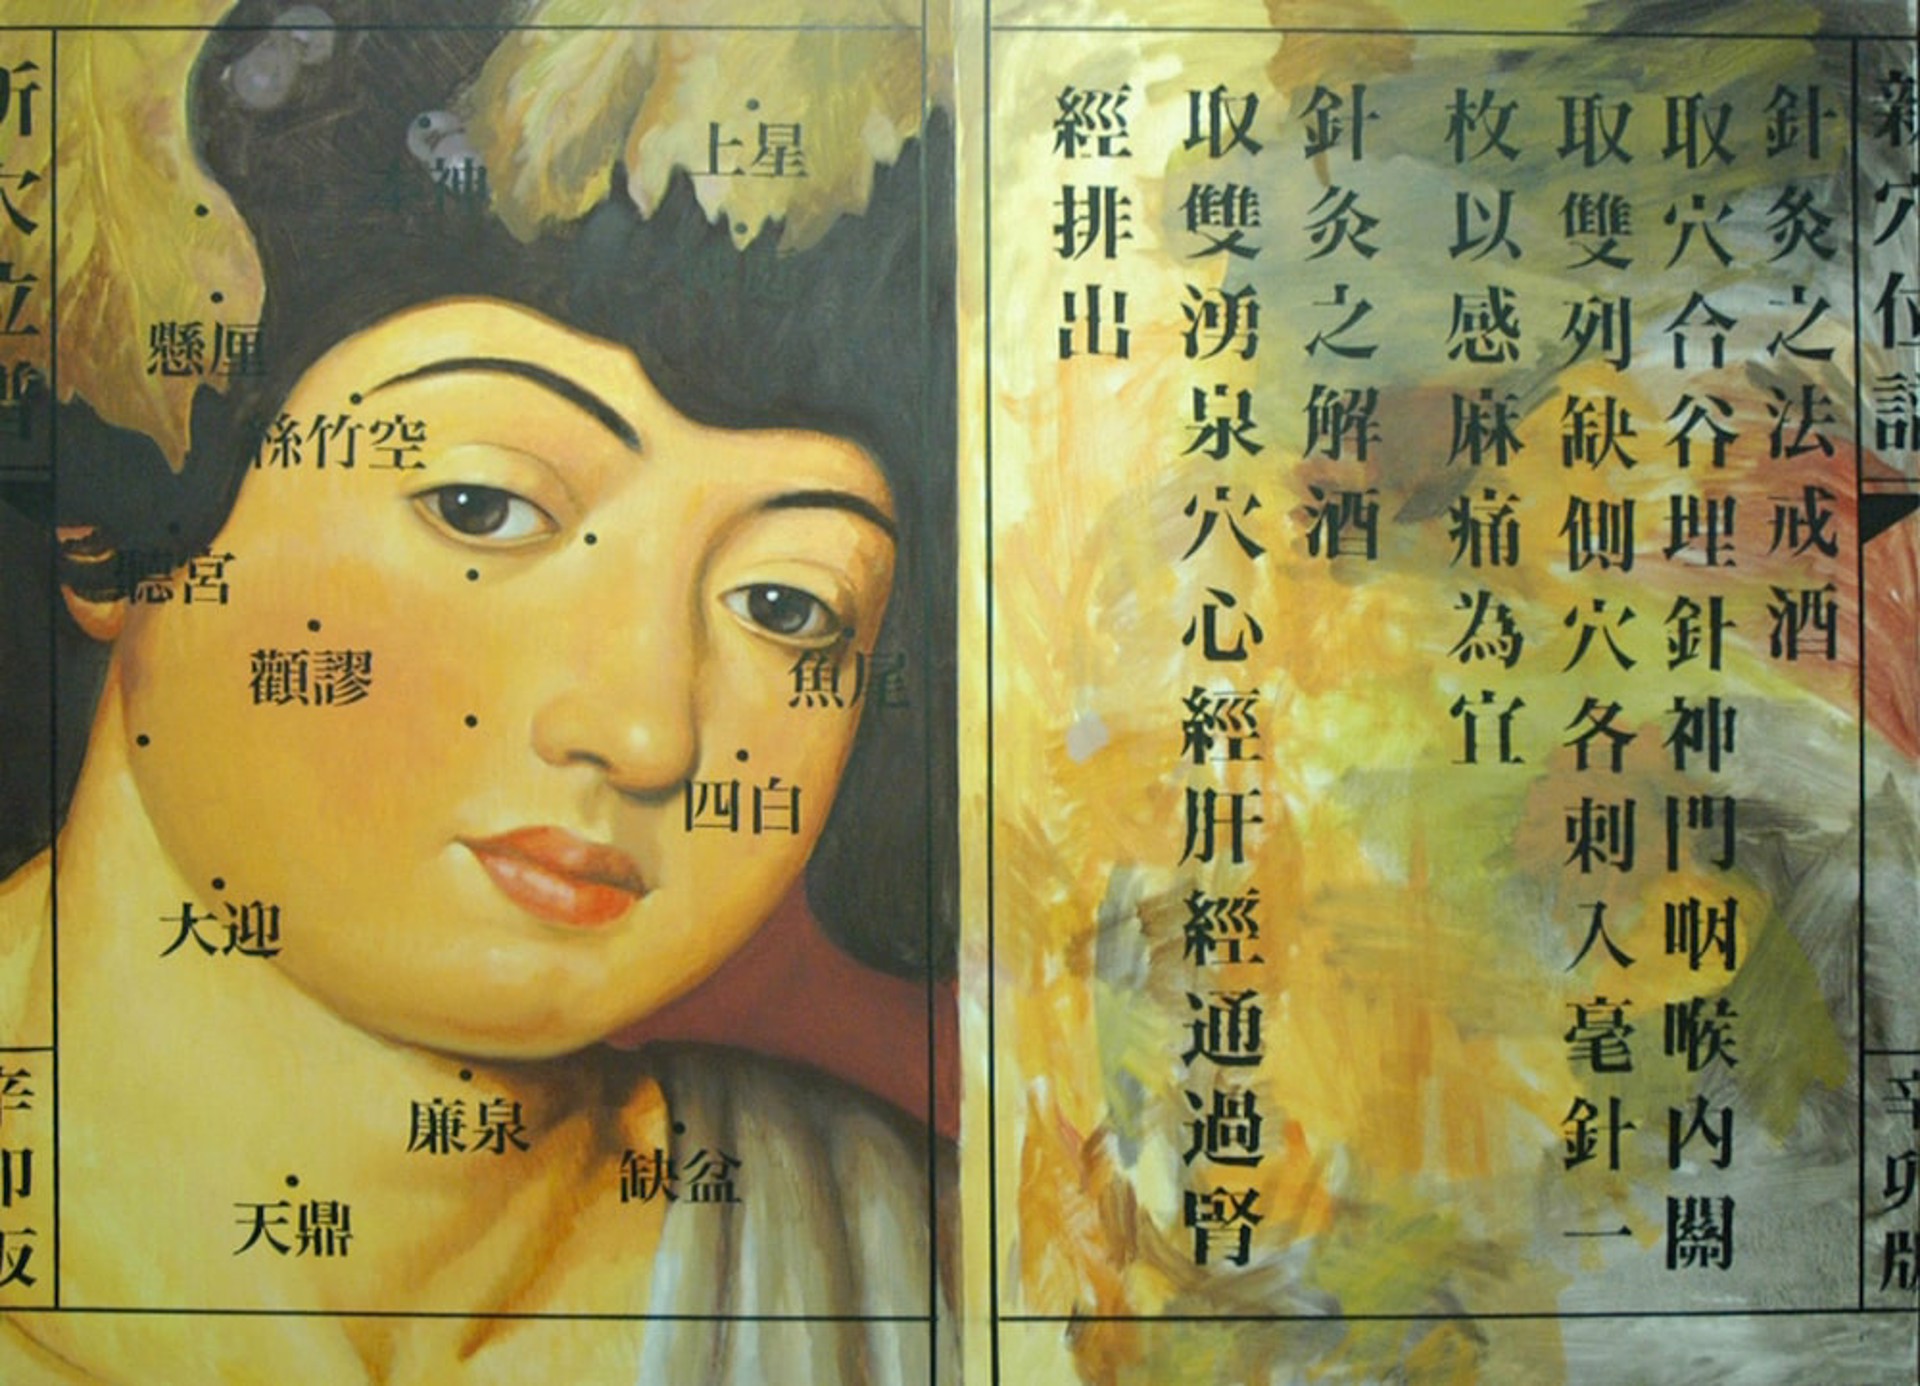 新穴位譜
辛卯版
針灸之法戒酒
取穴合谷埋針神門咽喉內關
取雙列缺側穴各刺入毫針一
枚以感麻痛為宜
針灸之解酒
取雙湧泉穴心經肝經通過腎
經排出
上星
本神
懸厘
絲竹空
聽宮
顴謬
魚尾
四白
大迎
廉泉
缺盆
天鼎
新穴位譜
辛卯版